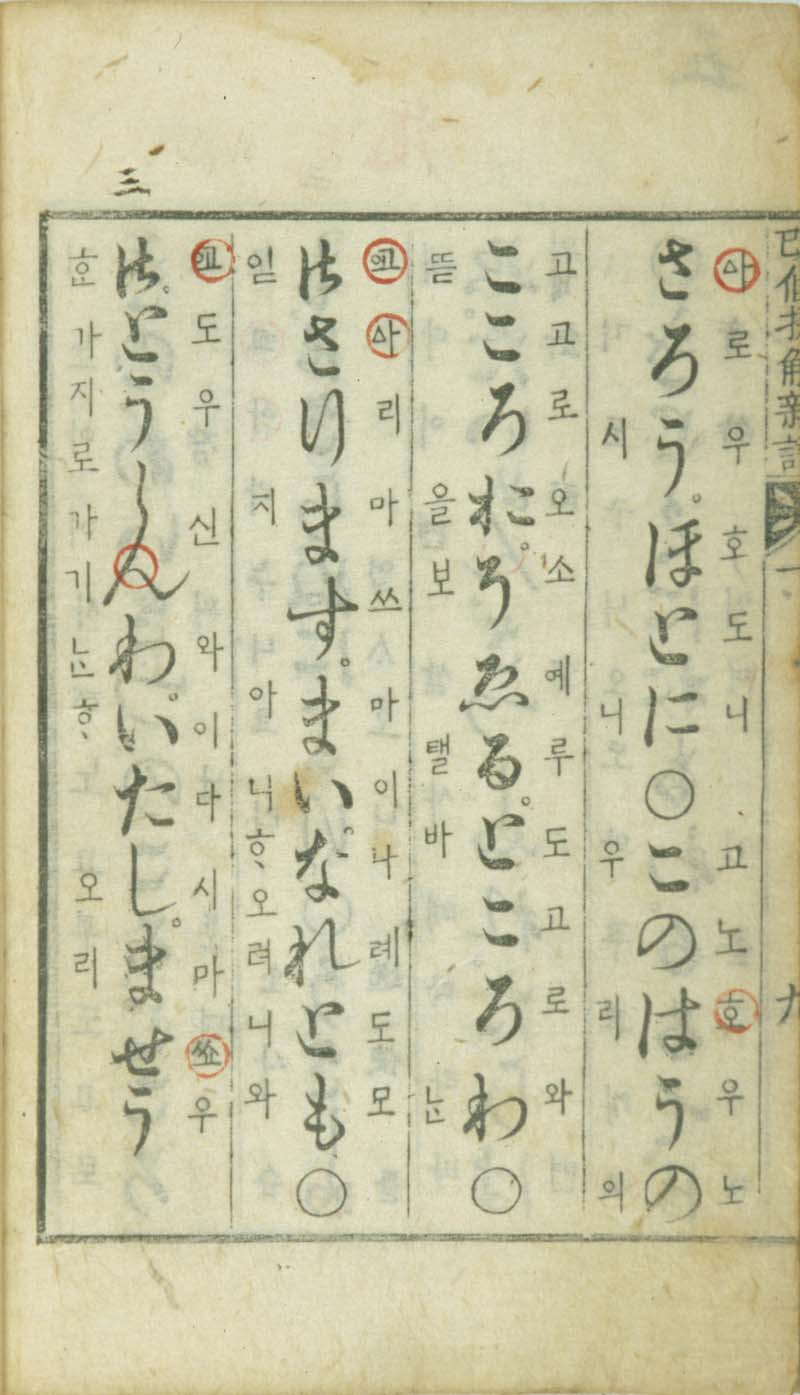 九
사로우호도니고노호우노
さろう。ほとに○このはうの
시니우리의
고고로오소예루도고로와
こころお。そゑる。ところわ○
뜯을보탤바ᄂᆞᆫ
사리마쓰마이나례도모
御さります。まいなれとも○
읻지아니ᄒᆞ오려니와
도우신와이다시마쇼우
御。とうしんわ。いたし。ませう
ᄒᆞᆫ가지로가기ᄂᆞᆫᄒᆞ오리
三